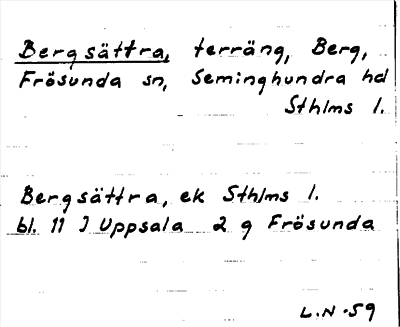 Bergsättra, terräng, Berg,
Frösunda sn, Seminghundra hd
Sthlms l.
Bergsättra, ek Sthlms l.
bl. 11 J Uppsala 2 g Frösunda
L.N.-59